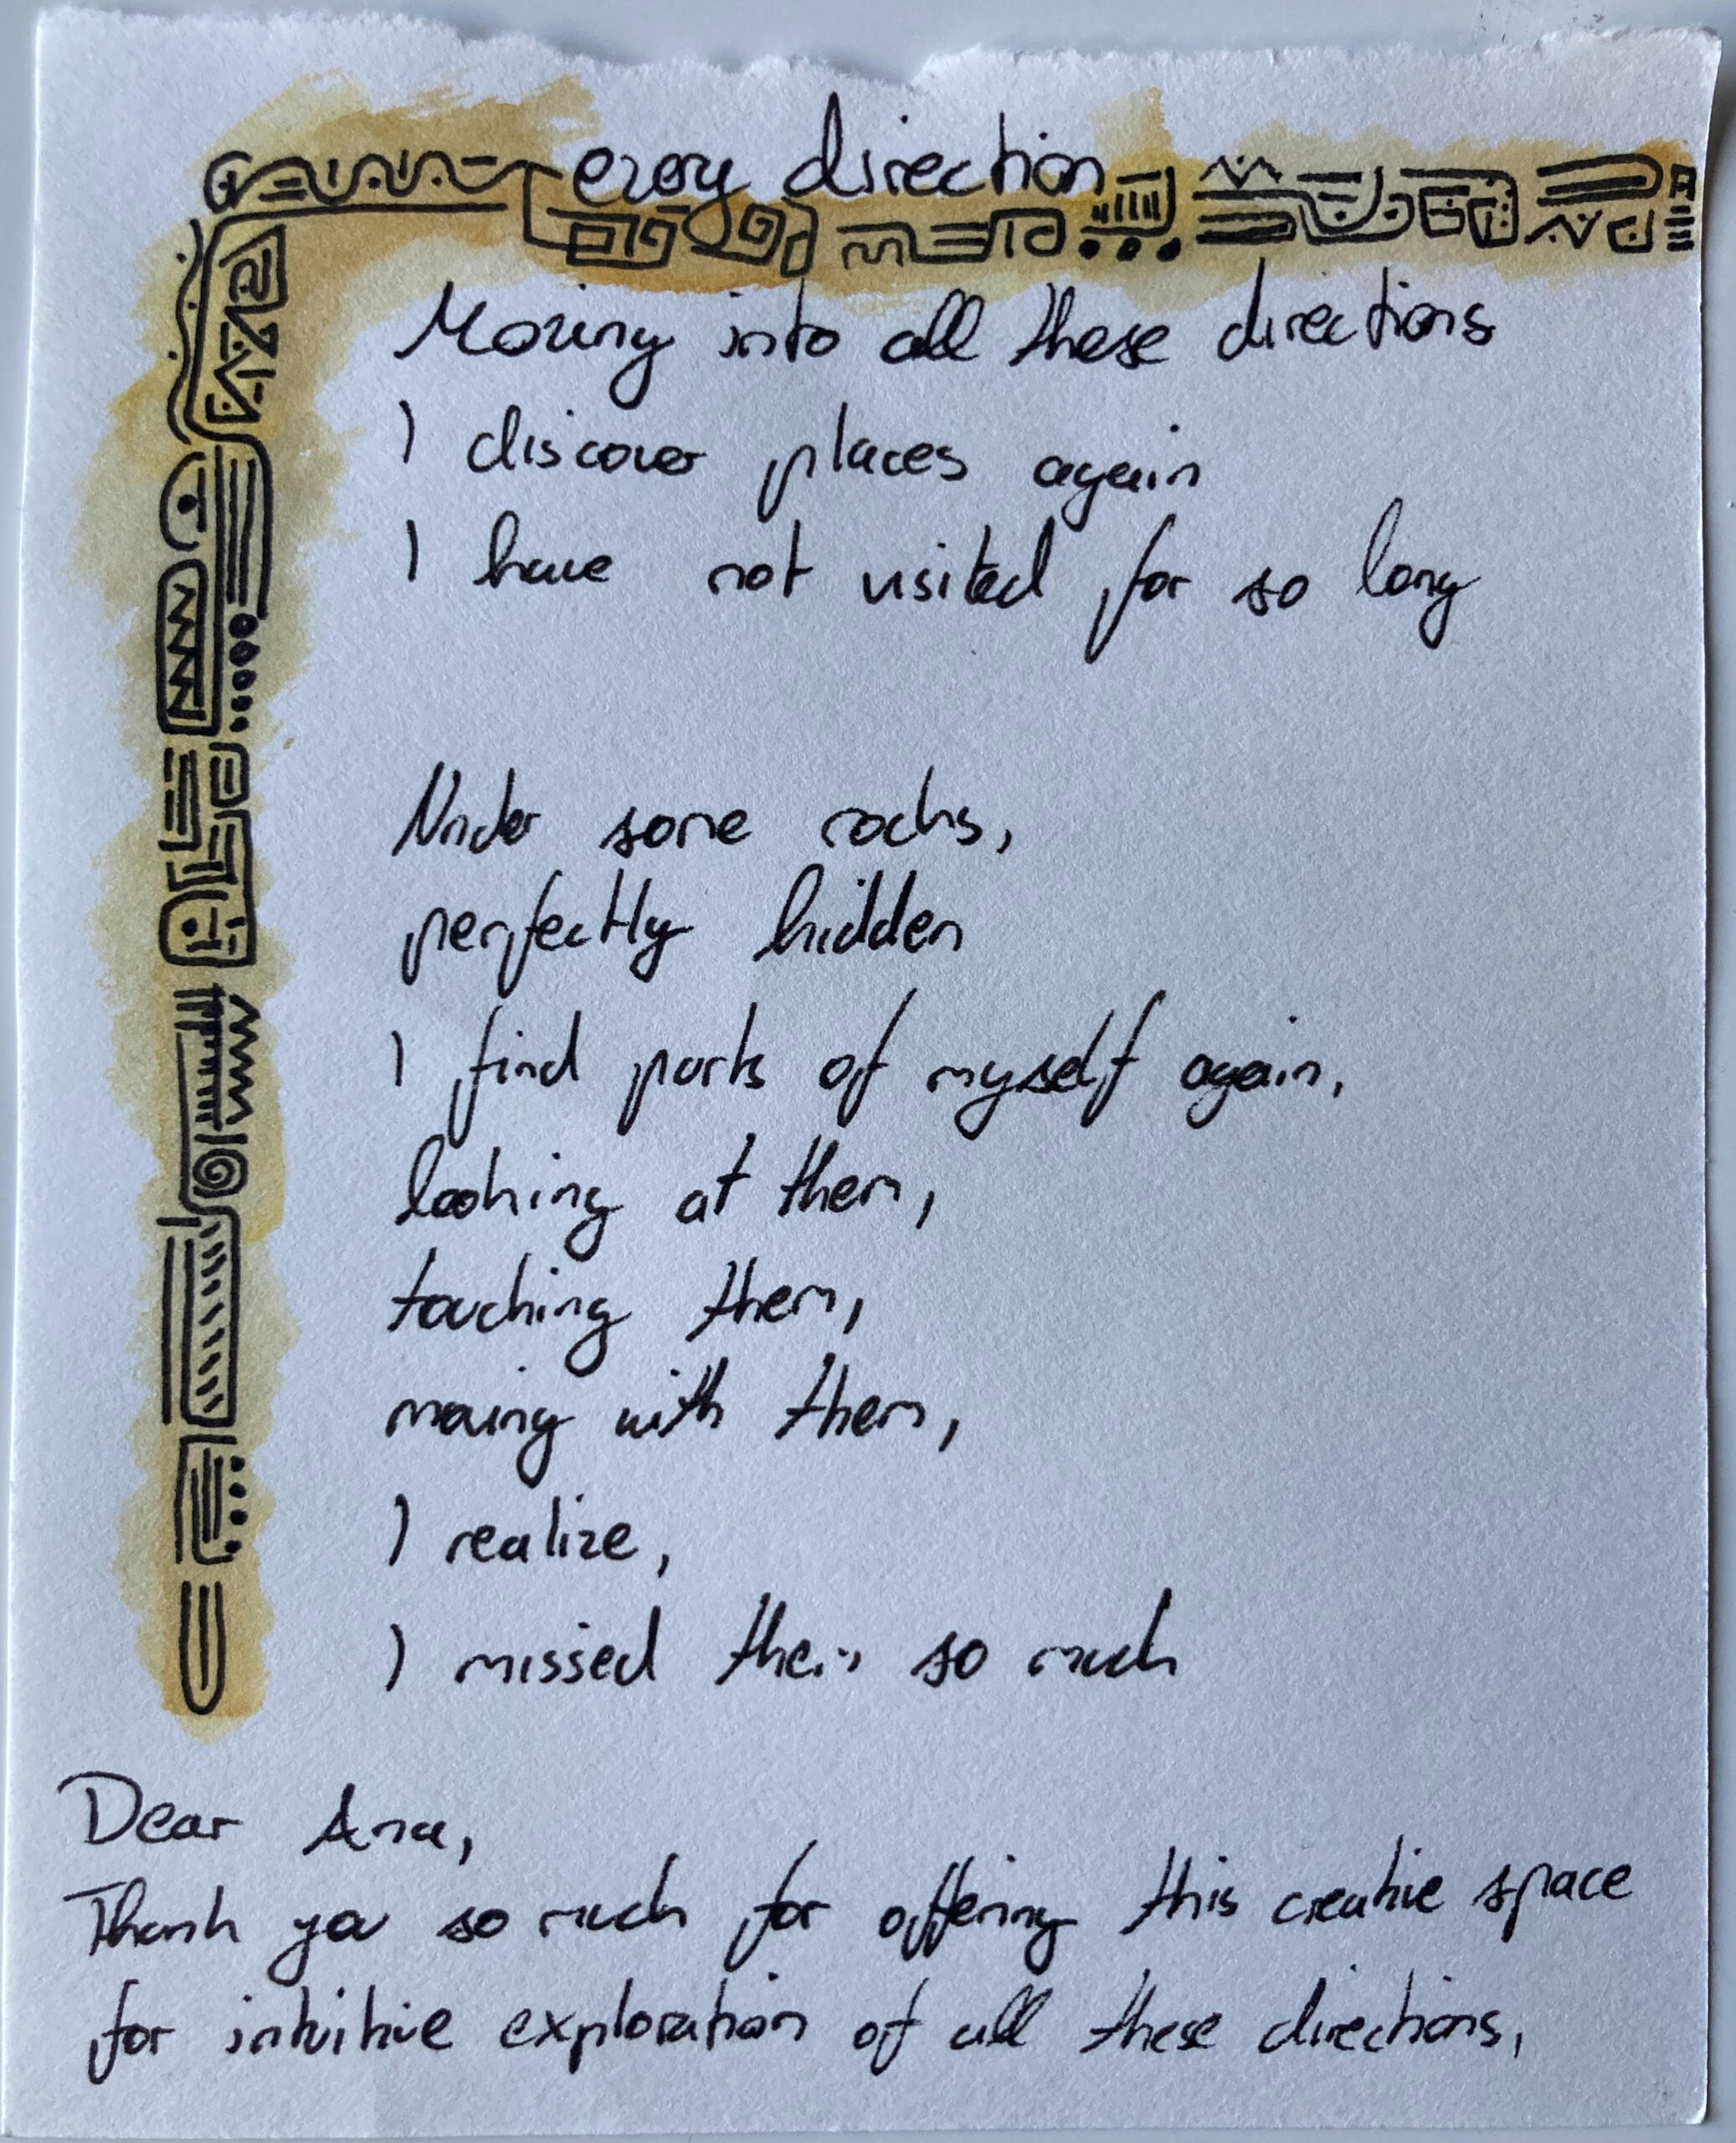 every direction
Moving into all these directions
I discover places again
I have not visited for so long
Under some rocks,
perfectly hidden
I find parts of myself again,
looking at them,
touching them,
moving with them,
I realize,
I missed them so much
Dear Ana,
Thank you so much for offering this creative space
for intuitive exploration of all these directions,